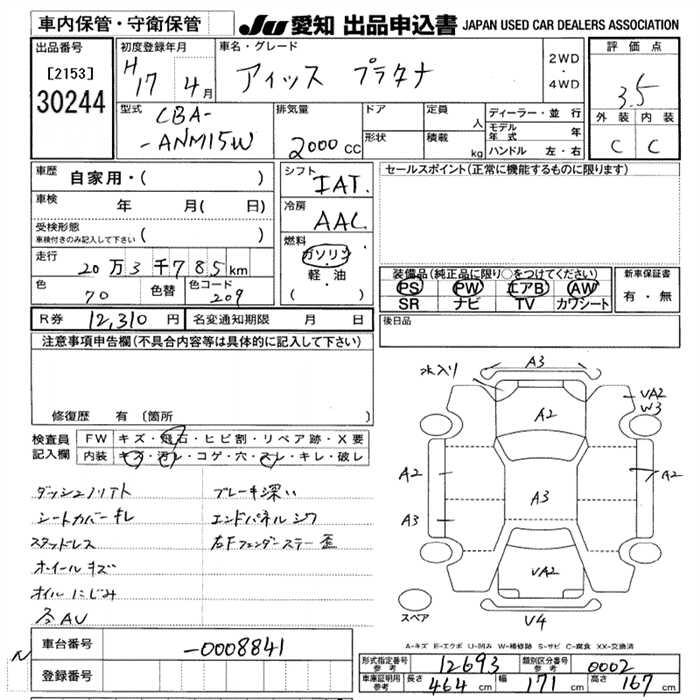 車内保管・守衛保管
JU 愛知 出品申込書 JAPAN USED CAR DEALERS ASSOCIATION
出品番号
[2153]
30244
初度登録年月
H17 4月
車名・グレード
アイシス プラタナ
2WD
・
4WD
評価点
3.5
外装 内装
C C
型式
CBA-
-ANM15W
排気量
2000 CC
ドア
形状
定員 人
積載 kg
ディーラー・並行
モデル年式 年
ハンドル 左・右
車歴 自家用・( )
車検 年 月( 日)
受検形態
車検付きのみ記入して下さい ( )
走行 20万3千785km
色 70 色替 色コード 209
シフト
IAT.
冷房
AAC
燃料
ガソリン
軽・油
( ・ )
セールスポイント(正常に機能するものに限ります)
装備品(純正品に限り○をつけてください)
PS PW エアB AW
SR ナビ TV カワシート
新車保証書
有・無
R券 12,310 円 名変通知期限 月 日
後日品
注意事項申告欄(不具合内容等は具体的に記入して下さい)
修復歴 有(箇所 )
検査員
記入欄
FW キズ・飛石・ヒビ割・リペア跡・X要
内装 キズ・汚れ・コゲ・穴・スレ・キレ・破レ
ダッシュノリアト
シートカバーキレ
スタッドレス
ホイールキズ
オイルにじみ
社外AV
ブレーキ深い
エンドパネルシワ
右Fフェンダーステー歪
水入り
A3
A2
VA2
W3
A2
A3
A3
A2
VA2
V4
スペア
A-キズ E-エクボ U-凹み W-補修跡 S-サビ C-腐食 XX-交換済
N
車台番号 -0008841
登録番号
形式指定番号 参考 12693 類別区分番号 参考 0002
車庫証明用 参考 長さ 464 cm 幅 171 cm 高さ 167 cm